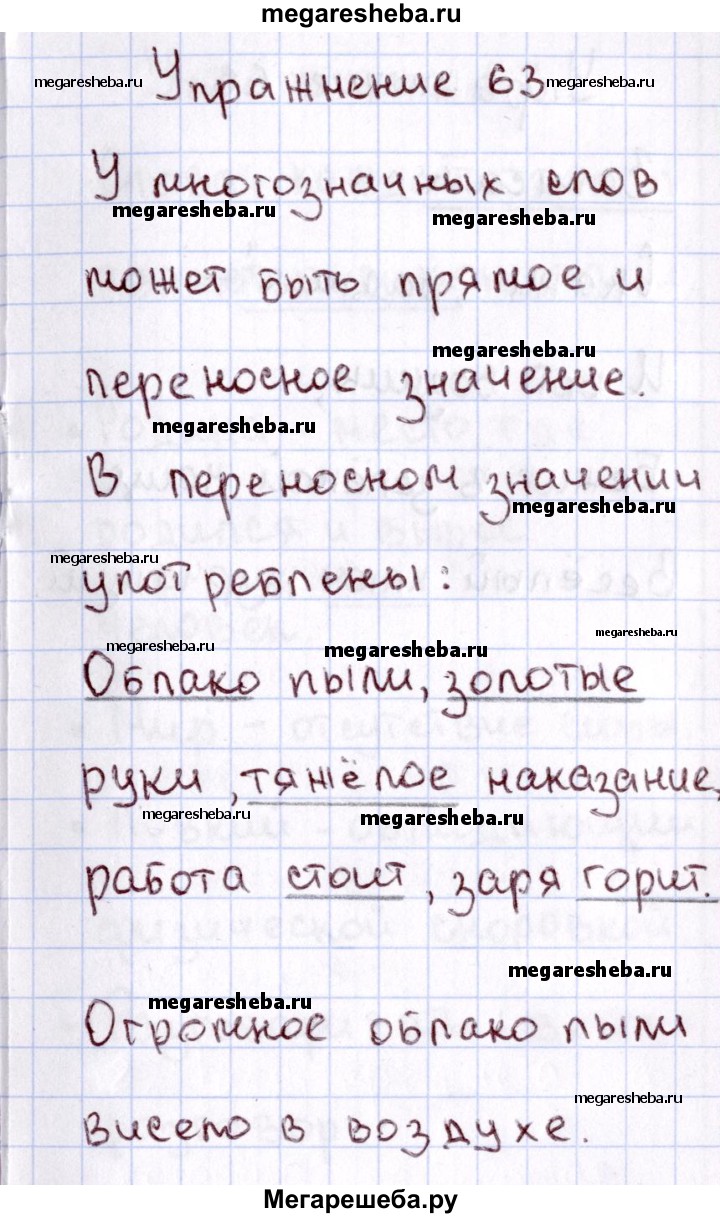 megaresheba.ru
Упражнение 63
megaresheba.ru
megaresheba.ru
У многозначных слов
megaresheba.ru
megaresheba.ru
может быть прямое и
megaresheba.ru
переносное значение.
megaresheba.ru
В переносном значении
megaresheba.ru
megaresheba.ru
употреблены:
megaresheba.ru
megaresheba.ru
megaresheba.ru
Облако пыли, золотые
руки, тяжёлое наказание,
megaresheba.ru
megaresheba.ru
работа стоит, заря горит.
megaresheba.ru
megaresheba.ru
Огромное облако пыли
megaresheba.ru
висело в воздухе.
Мегарешеба.ру